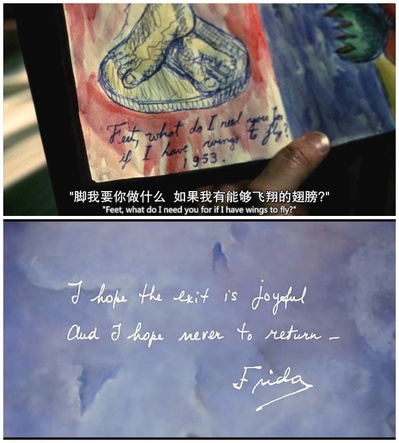 Feet, what do I need you for
if I have wings to fly?
1953.
"脚我要你做什么 如果我有能够飞翔的翅膀?"
"Feet, what do I need you for if I have wings to fly?"
I hope the exit is joyful
And I hope never to return -
Frida